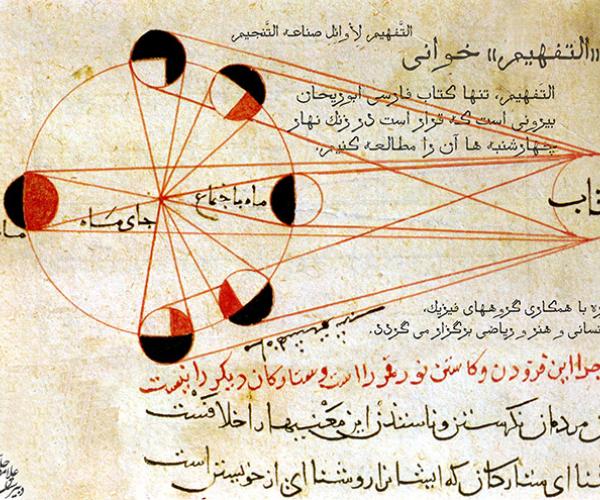 التَّفهیم لِأوائل صناعه التَّنجیم
«التفهیم» خوانی
التفهیم، تنها کتاب فارسی ابوریحان
بیرونی است که قرار است در زنگ نهار
چهارشنبه ها آن را مطالعه کنیم.
ماه باجتماع
جای ماه
ماه
تاب
ره با همکاری گروههای فیزیک،
انسانی و هنر و ریاضی برگزار می گردد.
چرا این فزودن و کاستن نور قمر را است و ستارکان دیکر را نیست
مردمان نکرستن و ناسندن این معنیها را خلافست
ستارکان که ایشانرا روشنای از خویشتن است